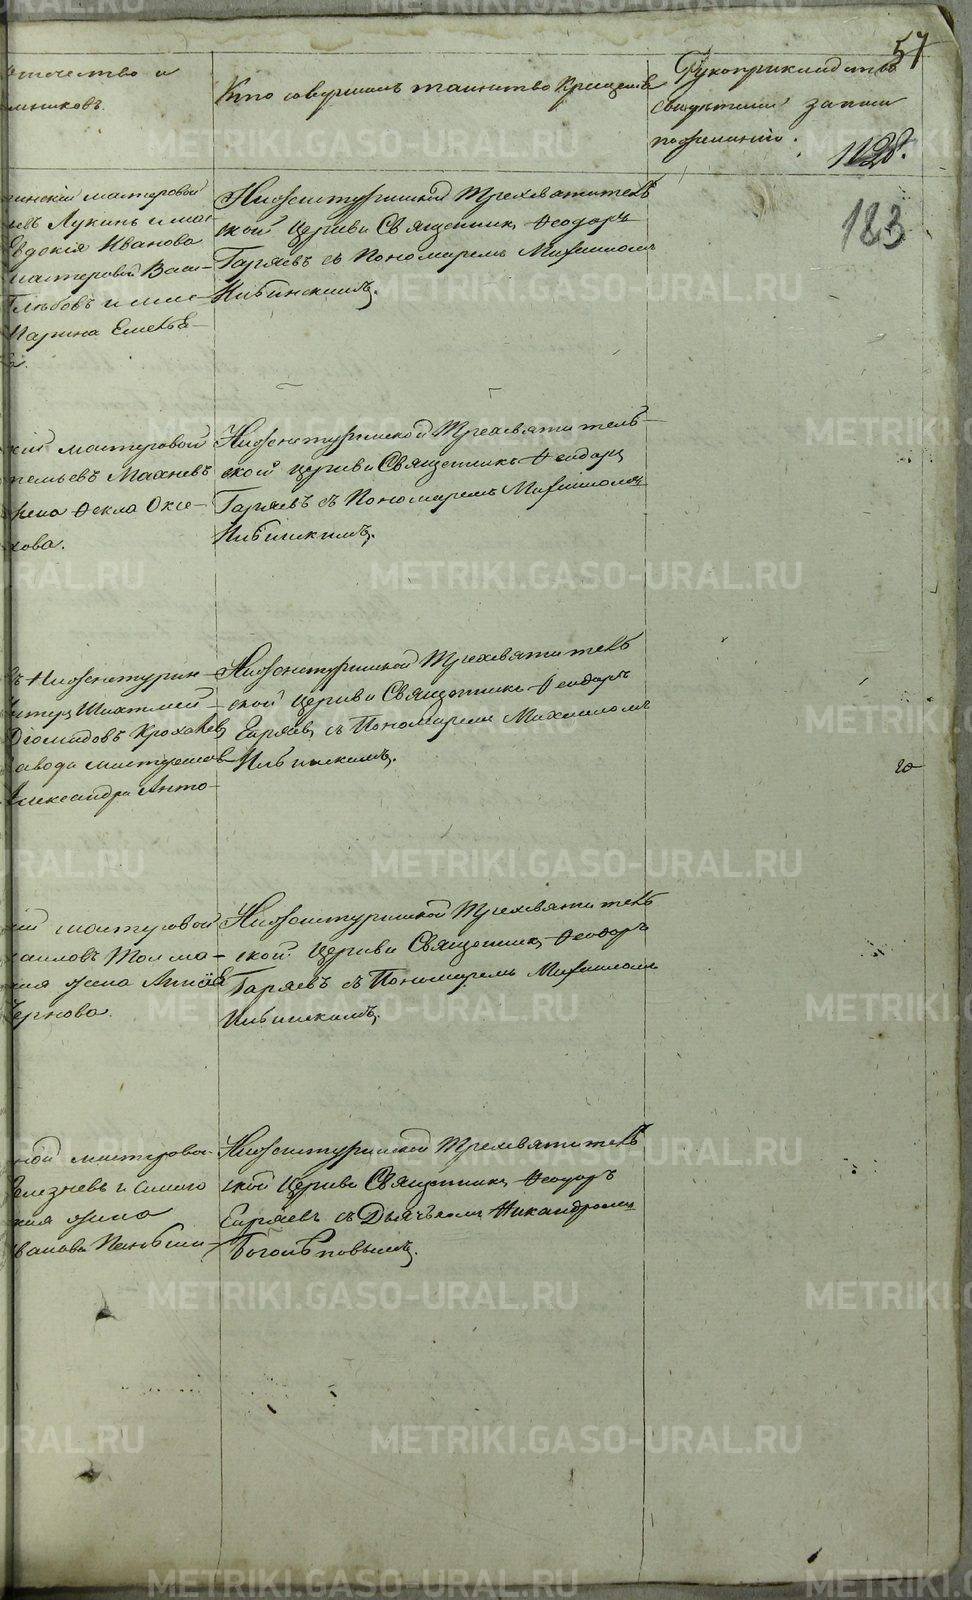 57
отчество и
мников.
Кто совершалъ таинство крещенiя
Рукоприкладство
свидѣтелей записи
по желанiю.
183
нскiй мастеровой
Лукинъ и
Евдокiя Иванова
мастеровой Васи-
Глѣбовъ и
Марина
Нижнетуринской Трехсвятитель-
ской церкви Священникъ Ѳеодоръ
Гаряевъ съ Пономаремъ Михаиломъ
Кибинскимъ.
кiй мастеровой
Махневъ
жена Ѳекла Оксе-
кова.
Нижнетуринской Трехсвятитель-
ской церкви Священникъ Ѳеодоръ
Гаряевъ съ Пономаремъ Михаиломъ
Кибинскимъ.
Нижнетурин-
Дiомидовъ Крохалев
завода мастеров
Александра Анто-
Нижнетуринской Трехсвятитель-
ской церкви Священникъ Ѳеодоръ
Гаряевъ съ Пономаремъ Михаиломъ
Кибинскимъ.
кiй мастеровой
хаиловъ Толма-
жена
Чернова.
Нижнетуринской Трехсвятитель-
ской церкви Священникъ Ѳеодоръ
Гаряевъ съ Пономаремъ Михаиломъ
Кибинскимъ.
ной мастеровой
елезневъ и
жена
Иванова
Нижнетуринской Трехсвятитель-
ской церкви Священникъ Ѳеодоръ
Гаряевъ съ Дьячкомъ Никандромъ
Боголѣповымъ.
METRIKI.GASO-URAL.RU